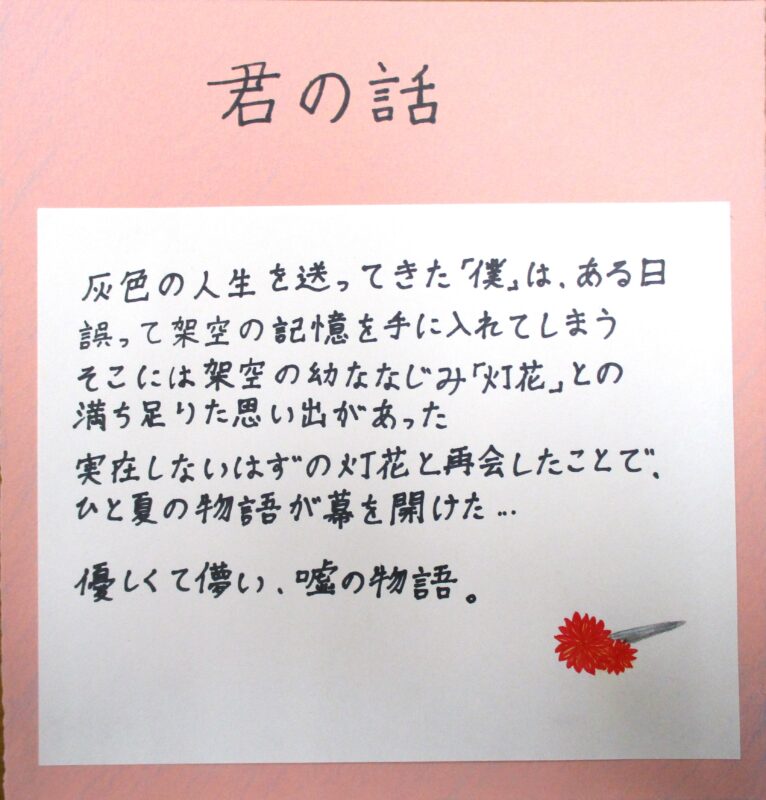 君の話
灰色の人生を送ってきた「僕」は、ある日
誤って架空の記憶を手に入れてしまう
そこには架空の幼ななじみ「灯花」との
満ち足りた思い出があった
実在しないはずの灯花と再会したことで、
ひと夏の物語が幕を開けた…
優しくて儚い、嘘の物語。